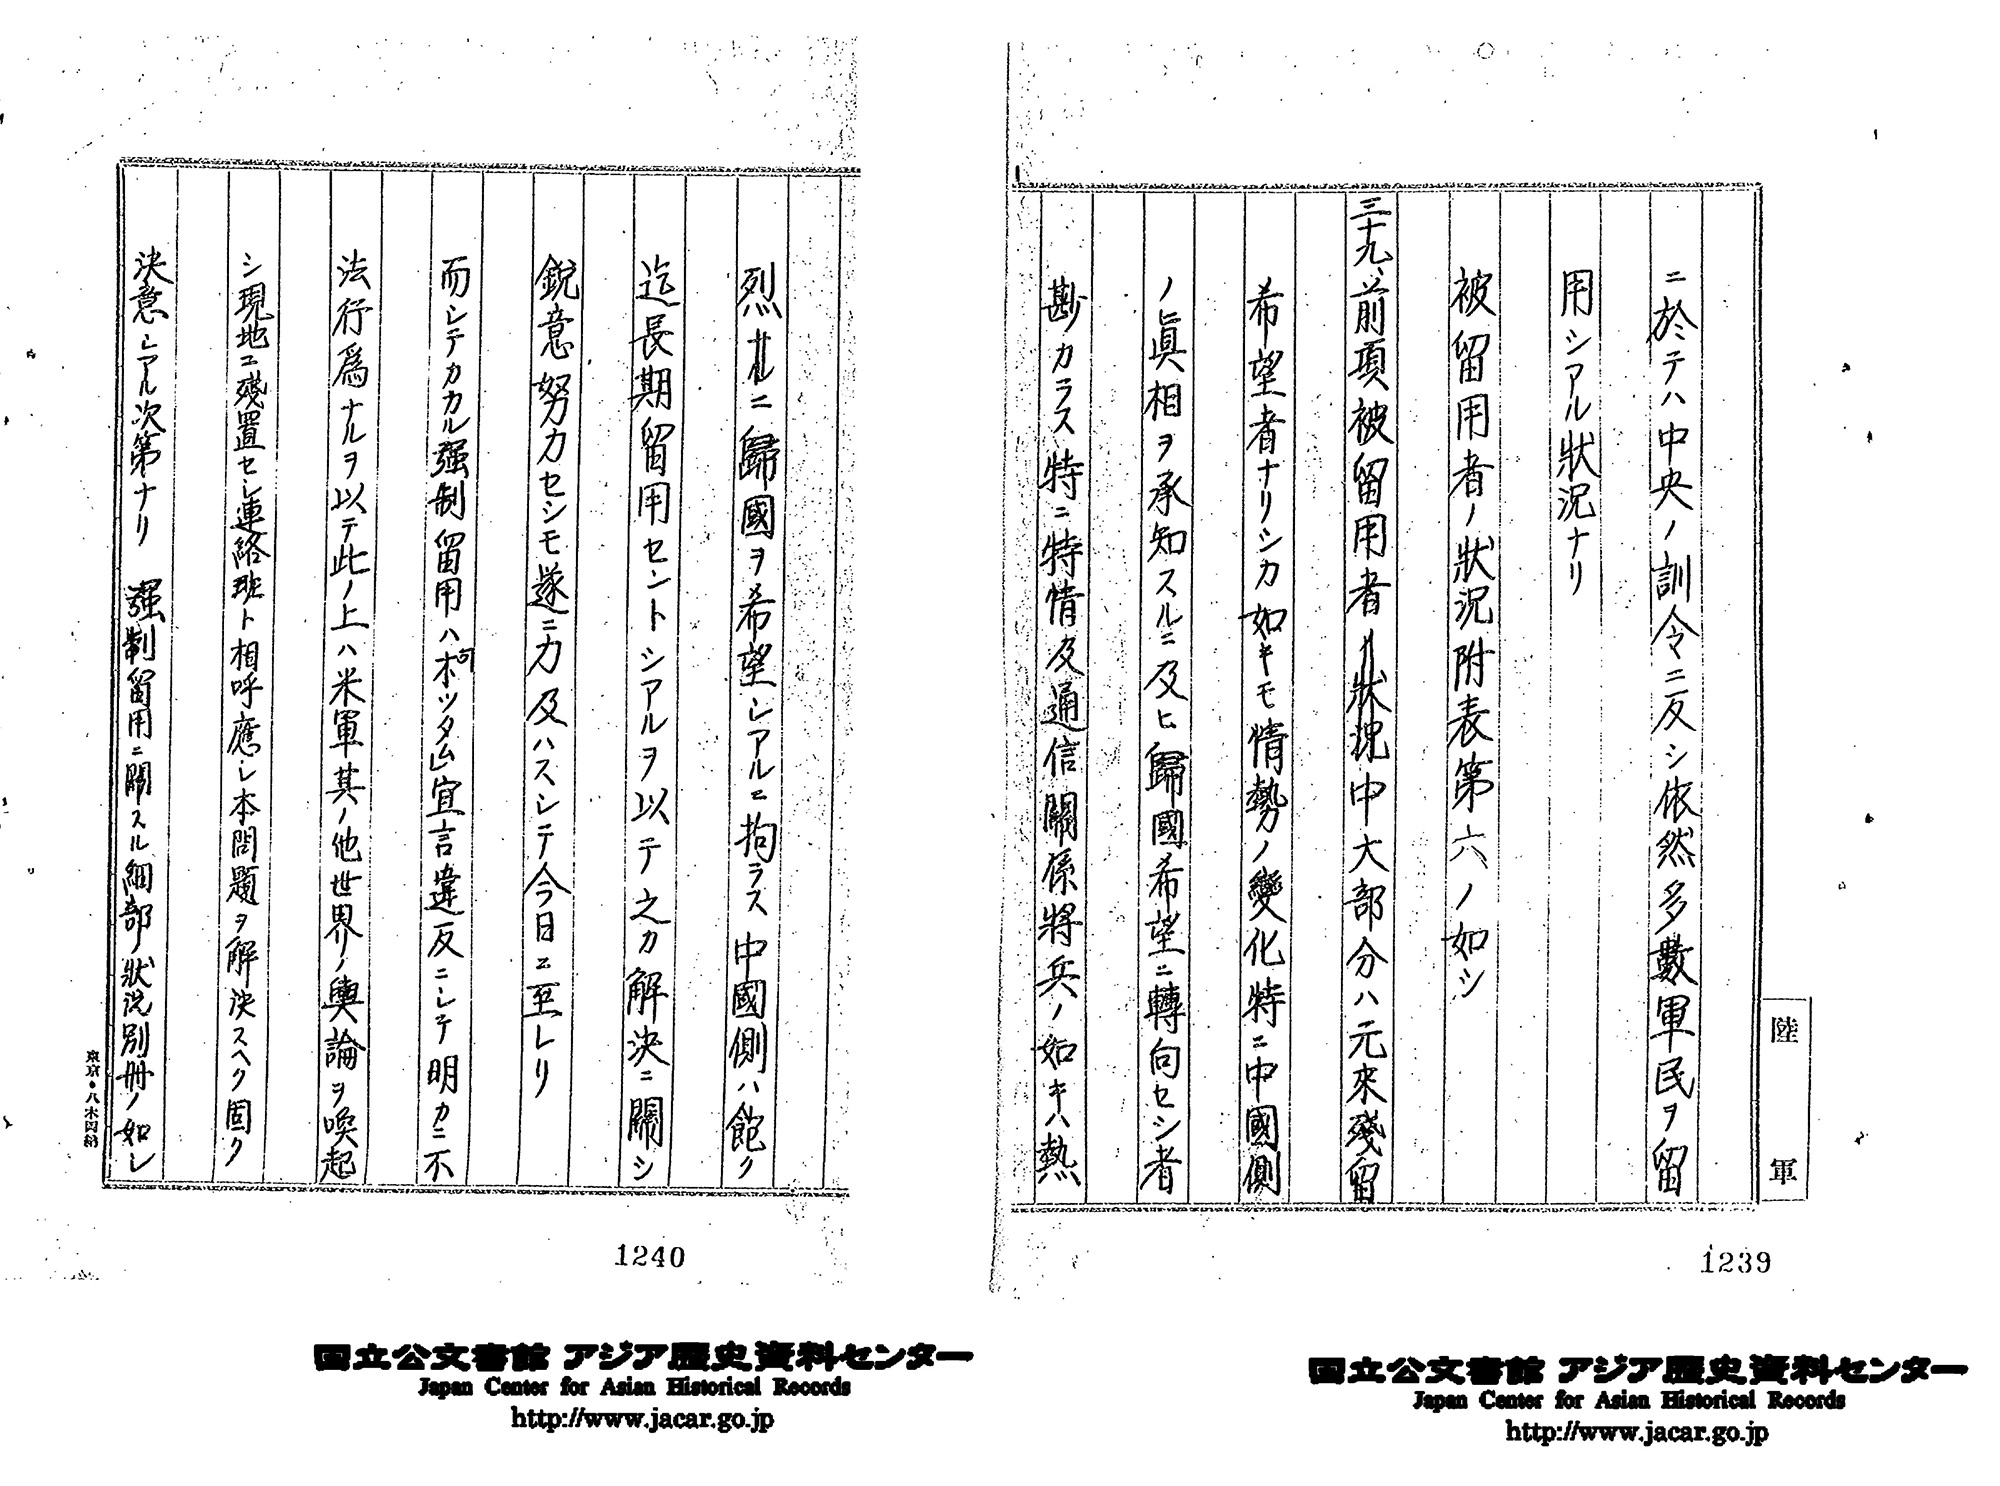 ニ於テハ中央ノ訓令ニ反シ依然多數軍民ヲ留
用シアル狀況ナリ
被留用者ノ狀況附表第六ノ如シ
三十九、前項被留用者ノ狀況中大部分ハ元來殘留
希望者ナリシカ如キモ情勢ノ變化特ニ中國側
ノ眞相ヲ承知スルニ及ヒ歸國希望ニ轉向セシ者
尠カラス特ニ特情及通信關係將兵ノ如キハ熱
陸軍
1239
烈ナルニ歸國ヲ希望シアルニ拘ラス中國側ハ飽ク
迄長期留用セントシアルヲ以テ之カ解決ニ關シ
銳意努力セシモ遂ニ力及ハスシテ今日ニ至レリ
而シテカカル强制留用ハポツタム宣言違反ニシテ明カニ不
法行爲ナルヲ以テ此ノ上ハ米軍其ノ他世界ノ輿論ヲ喚起
シ現地ニ殘置セシ連絡班ト相呼應シ本問題ヲ解決スヘク固ク
決意シアル次第ナリ 强制留用ニ關スル細部ノ狀況別册ノ如シ
東京・八木岡納
1240
国立公文書館 アジア歴史資料センター
Japan Center for Asian Historical Records
http://www.jacar.go.jp
国立公文書館 アジア歴史資料センター
Japan Center for Asian Historical Records
http://www.jacar.go.jp